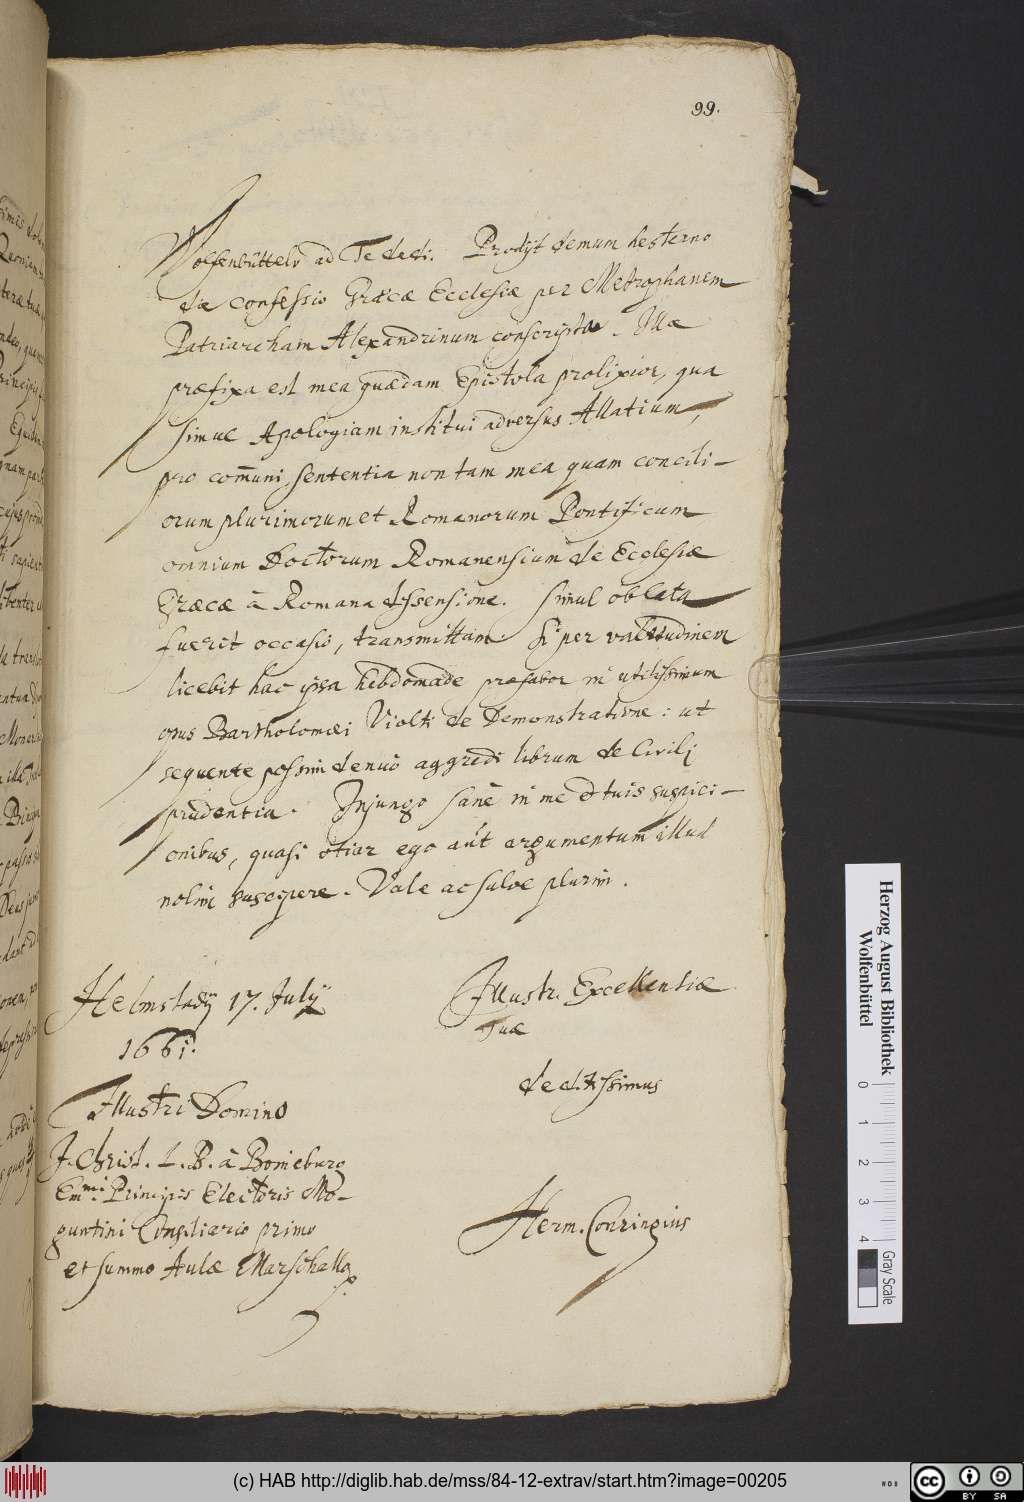 99.
Wolfenbüttelo ad Te dedi. Prodijt demum hesterno
die Confessio Græcæ Ecclesiæ per Metrophanem
Patriarcham Alexandrinum conscripta. Illæ
præfixa est mea quædam Epistola prolixior, qua
simul Apologiam institui adversus Allatium,
pro com̄uni sententia non tam mea quam concili-
orum plurimorum et Romanorum Pontificum
omnium Doctorum Romanensium de Ecclesiæ
Græcæ à Romana dissensione. Simul oblata
fuerit occasio, transmittam. Si per valetudinem
licebit hac ipsa hebdomade præfabor in utilissimum
opus Bartholomæi Viotti de Demonstratione: ut
sequente possim denuò aggredi librum de Civili
prudentia. Injungo sanè in me et tuis suspici-
onibus, quasi otiar ego aut argumentum illud
nolim suscipere. Vale ac salve plurim.
Helmstadij 17. Julij
1661.
Illustr. Excellentiæ
Tuæ
deditissimus
Herm. Conringius
Illustri Domino
J. Christ. L. B. à Boineburg
Em.mi Principis Electoris Mo-
guntini Consiliario primo
et summo Aulæ Marschallo
Herzog August Bibliothek
Wolfenbüttel
0 1 2 3 4
Gray Scale
(c) HAB http://diglib.hab.de/mss/84-12-extrav/start.htm?image=00205
cc BY SA